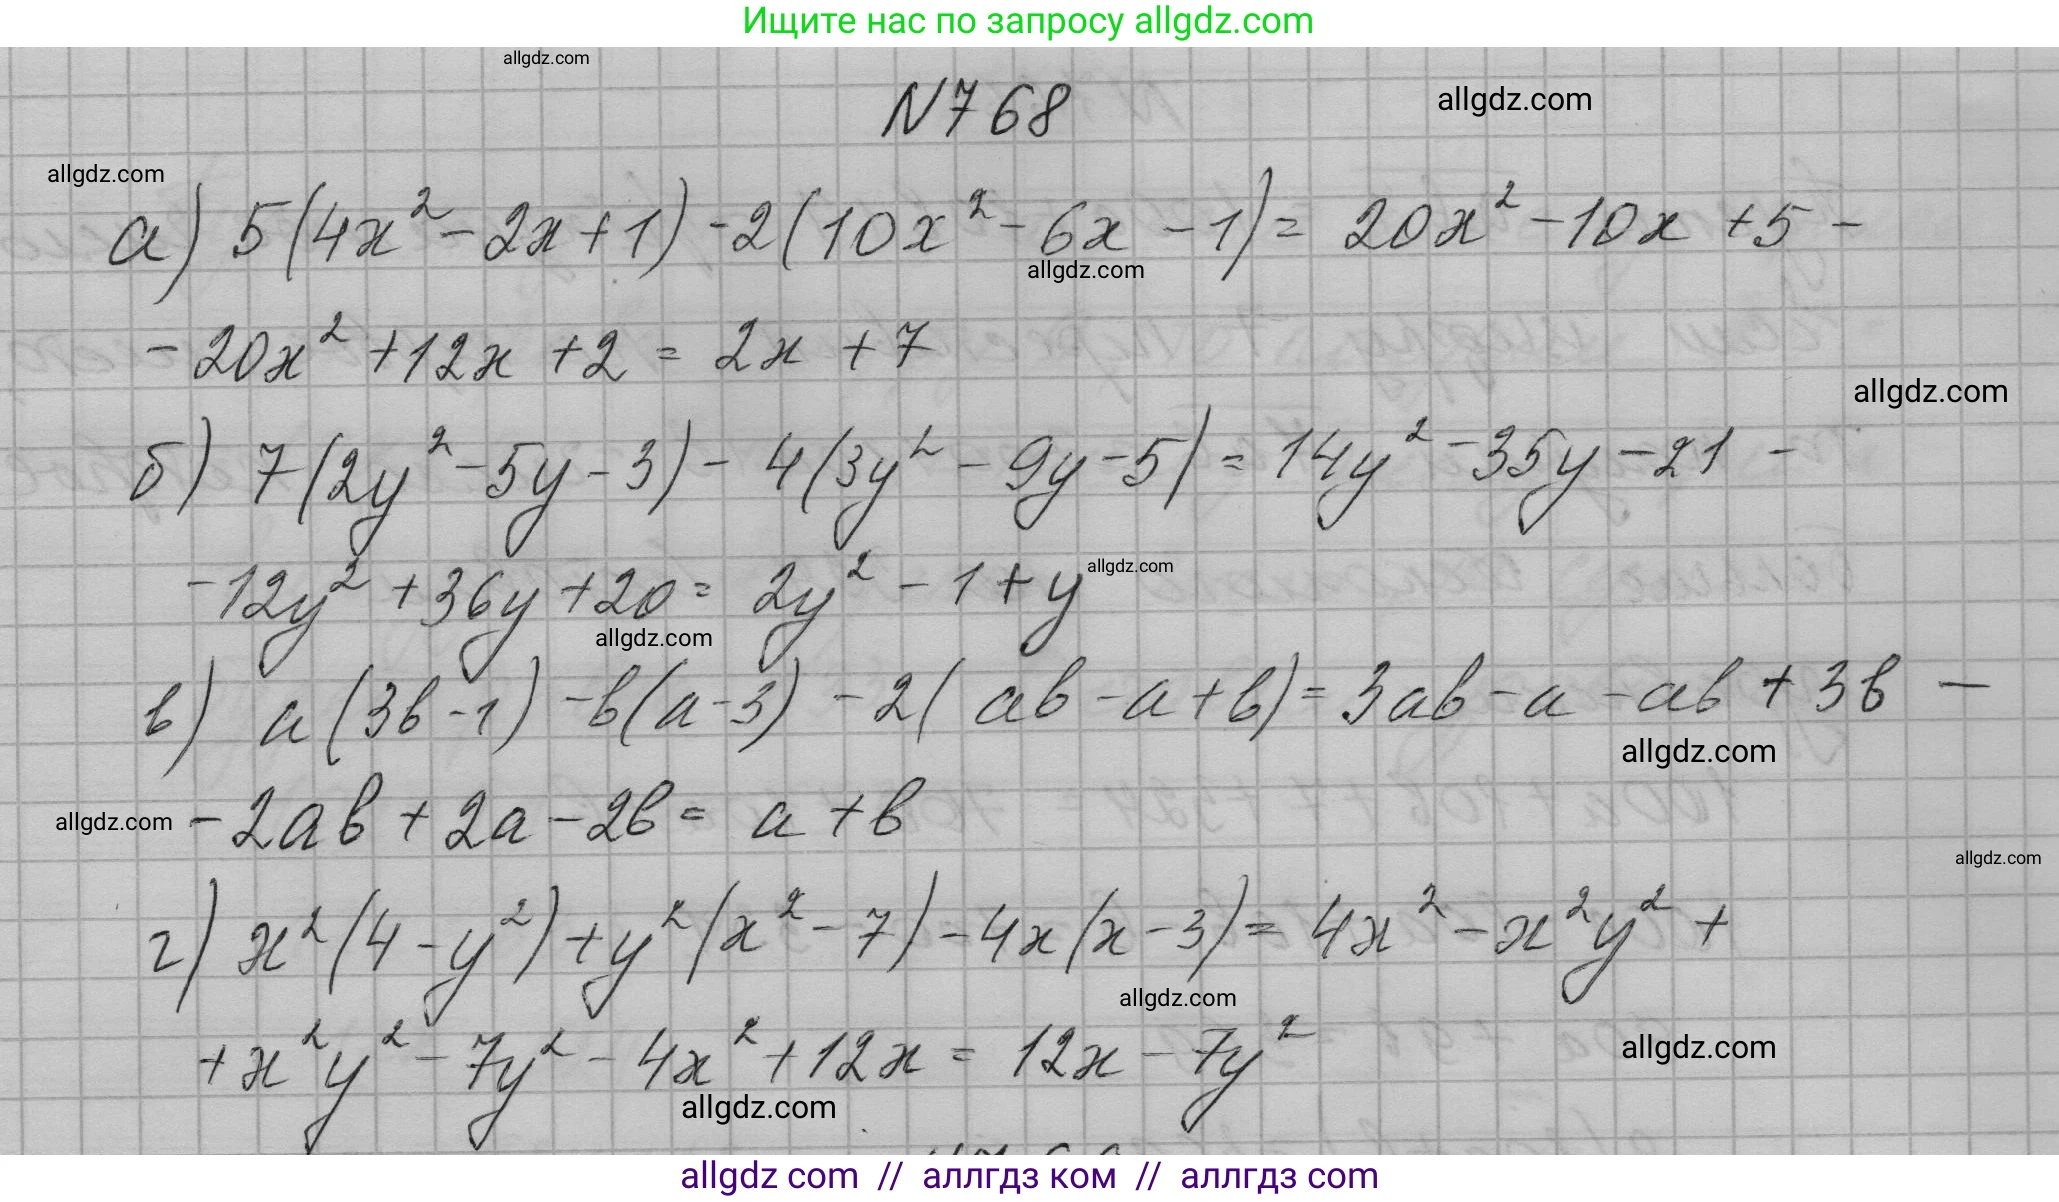 Ищите нас по запросу allgdz.com
allgdz.com
N768
allgdz.com
allgdz.com
а) 5(4x² - 2x + 1) - 2(10x² - 6x - 1) = 20x² - 10x + 5 -
allgdz.com
- 20x² + 12x + 2 = 2x + 7
allgdz.com
б) 7(2y² - 5y - 3) - 4(3y² - 9y - 5) = 14y² - 35y - 21 -
- 12y² + 36y + 20 = 2y² - 1 + y
allgdz.com
allgdz.com
в) a(3b - 1) - b(a - 3) - 2(ab - a + b) = 3ab - a - ab + 3b -
allgdz.com
allgdz.com
- 2ab + 2a - 2b = a + b
allgdz.com
г) x²(4 - y²) + y²(x² - 7) - 4x(x - 3) = 4x² - x²y² +
allgdz.com
+ x²y² - 7y² - 4x² + 12x = 12x - 7y²
allgdz.com
allgdz.com
allgdz com // аллгдз ком // аллгдз com